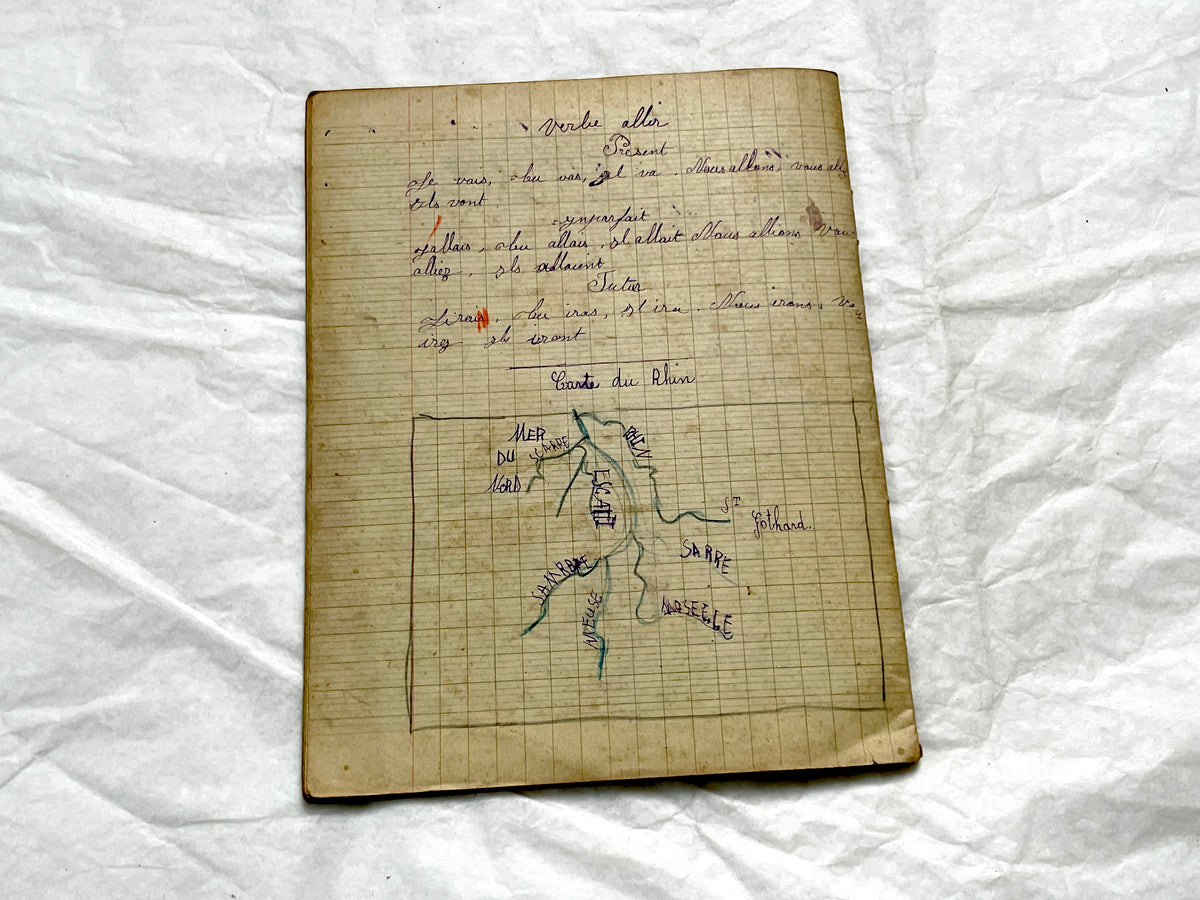 Verbe aller
Présent
Je vais, tu vas, il va. Nous allons, vous all
Ils vont
Imparfait
J'allais, tu allais, il allait Nous allions Vou
alliez, ils allaient
Futur
J'irais, tu iras, il ira. Nous irons, vo
irez ils iront
Carte du Rhin
MER
DU
NORD
RHIN
ESCAUT
ST
Gothard.
SARRE
SAMBRE
MEUSE
MOSELLE